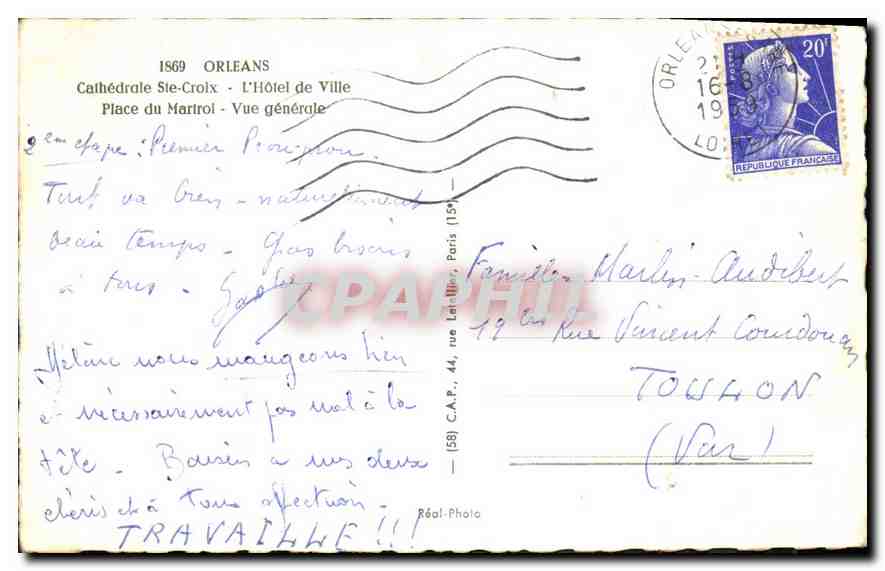 1869 ORLEANS
Cathédrale Ste-Croix - L'Hôtel de Ville
Place du Martroi - Vue générale
2em etape : Premier
Tout va bien - naturellement
beau temps - Gros baisers
à tous -
nous mangeons bien
et nécessairement pas mal à la
tête - Baisers à mes deux
chéris et à Tous affection -
TRAVAILLE!!!
(58) C.A.P., 44, rue Letellier, Paris (15e)
Réal-Photo
CPAPHIL
ORLEANS
16-8
LOIRET
POSTES
20F
REPUBLIQUE FRANÇAISE
Famille Martin-Audibert
19 bis Rue Vincent Courdouan
TOULON
(Var)